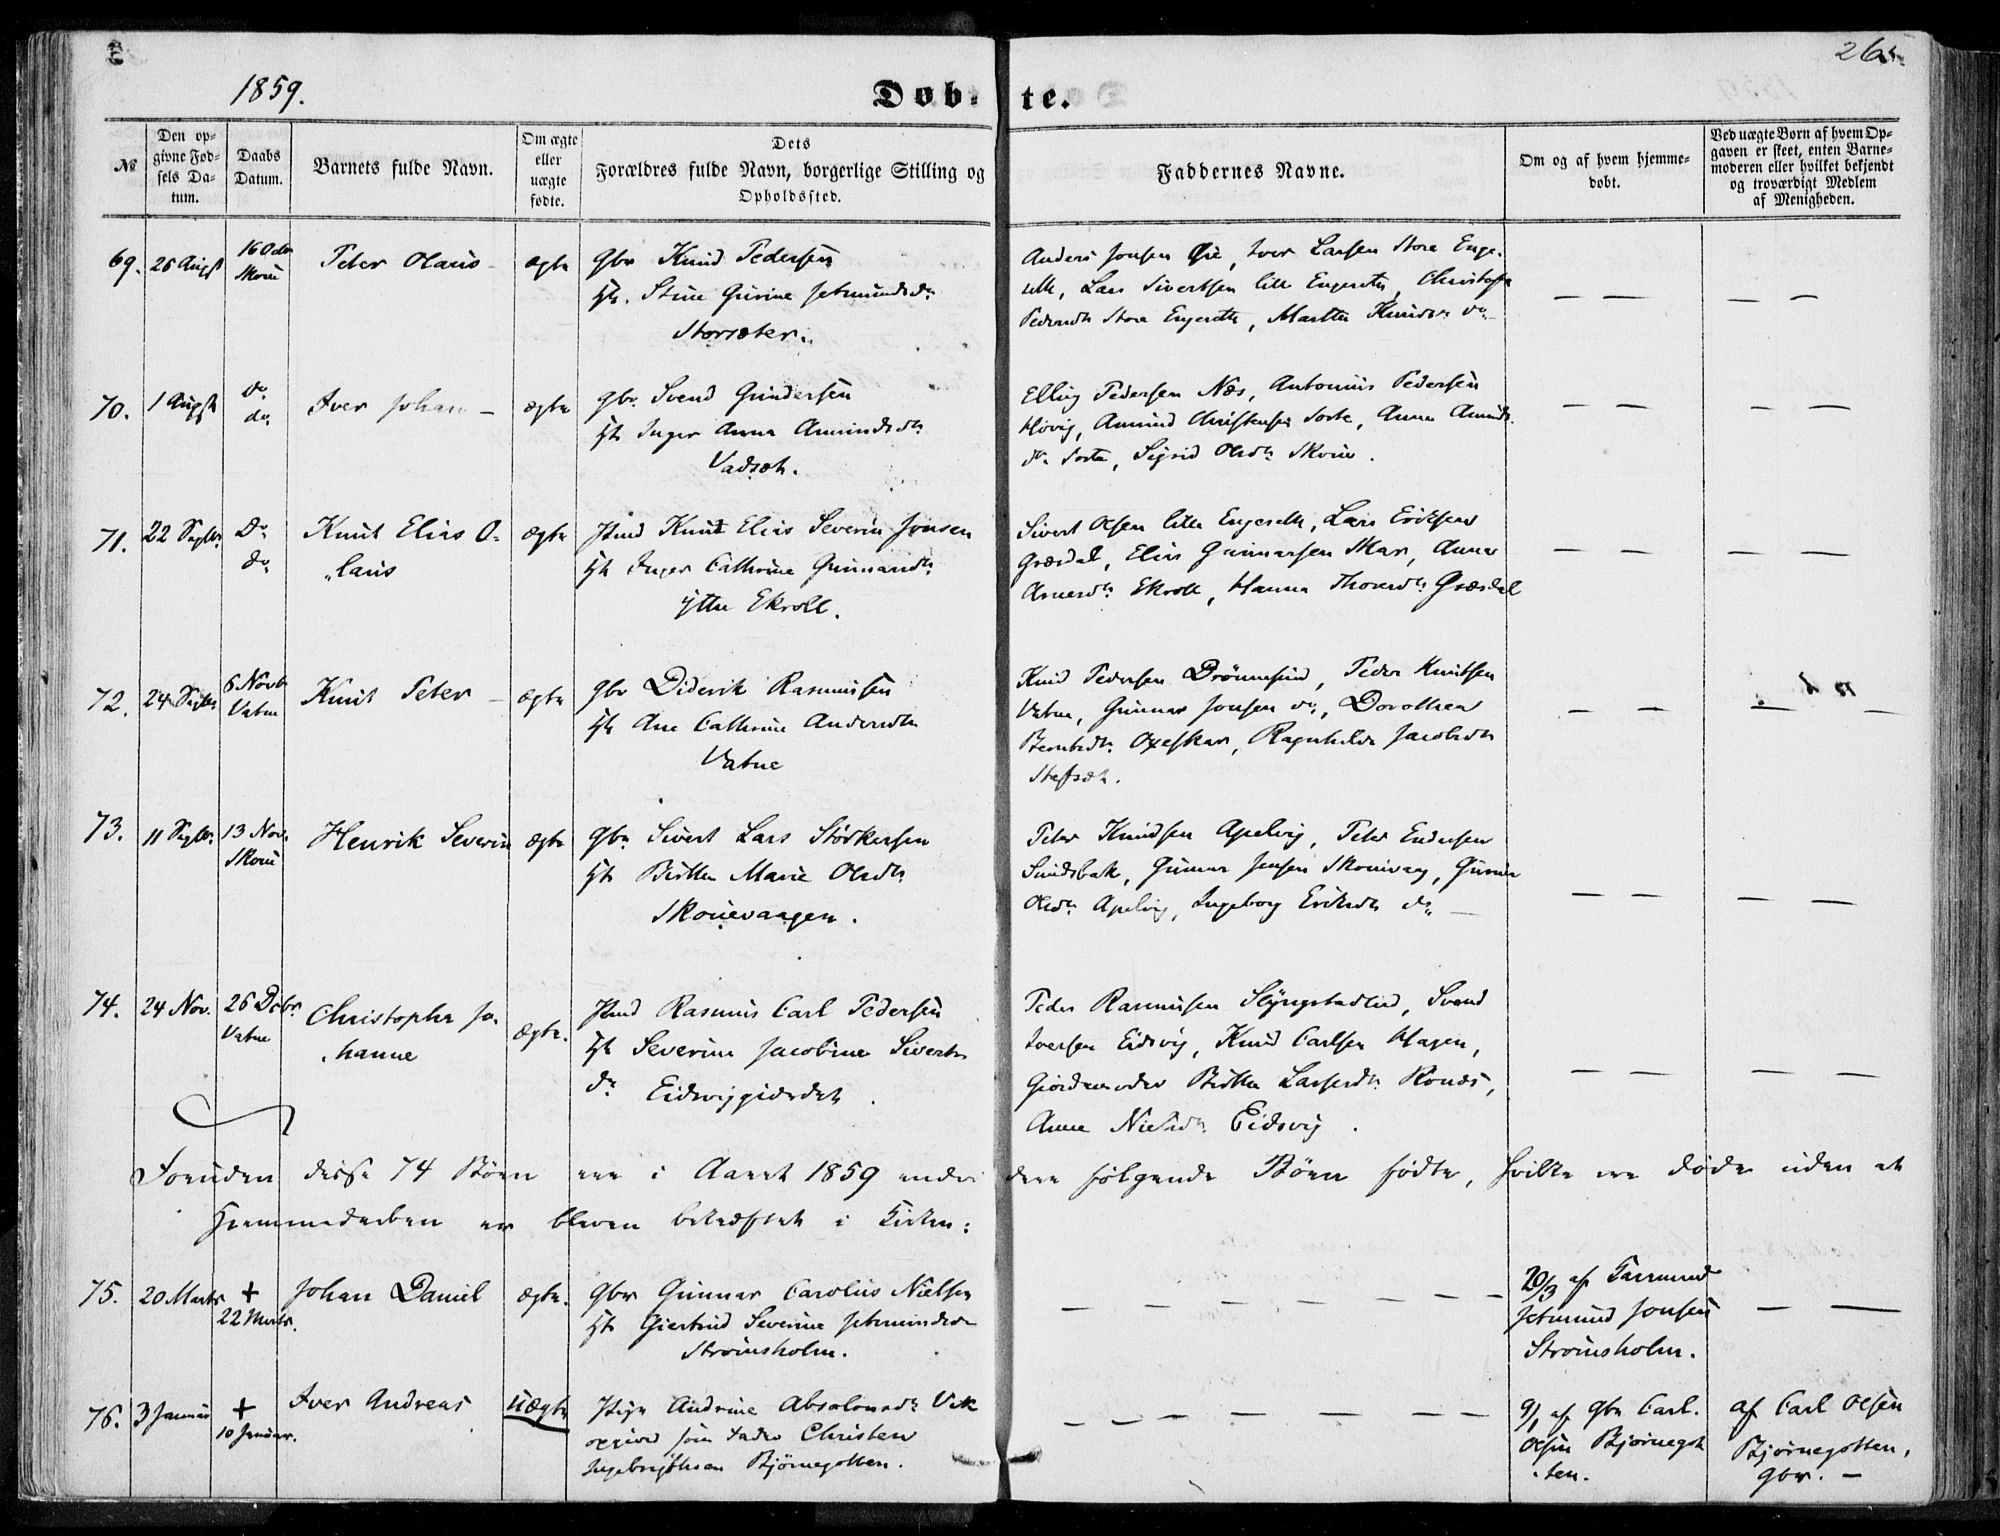 1859.
Døbte.
265.
№
Den opgivne Fødsels Datum.
Daabs Datum.
Barnets fulde Navn.
Om ægte eller uægte fødte.
Dets Forældres fulde Navn, borgerlige Stilling og Opholdssted.
Faddernes Navne.
Om og af hvem hjemmedøbt.
Ved uægte Børn af hvem Opgaven er skeet, enten Barnemoderen eller hvilket bekjendt og troværdigt Medlem af Menigheden.
69. 25 Augst 16 Octbr Skoue Peter Olaus – ægte
Gbr Knud Pedersen
H. Stine Gurine Jetmundsdr
Storsæter.
Anders Jonsen Øie, Iver Larsen Store Enge-
seth, Lars Sivertsen lille Engeseth, Christophe
Pedersdtr Store Engeseth, Marthe Knudsdr do –
— — — —
70. 1 Augst do do Iver Johan – ægte
Gbr. Svend Gundersen
H Inger Anna Amundsdtr
Vadset.
Elling Pedersen Næs, Antonius Pedersen
Høvig, Amund Christensen Sorte, Anna Amunds-
dr Sorte, Sigrid Olsdtr Skoue.
— — — —
71. 22 Septbr. Do do Knut Elias O-
"laus ægte
Knut Elias Severin Jonsen
H Inger Cathrine Gunnarsdtr
yttre Ekroll.
Sivert Olsen lille Engeseth, Lars Eriksen
Græsdal, Elias Gunnarsen Skar, Anne
Arnesdtr Ekroll, Hanna Thoresdtr Græsdal
— — — —
72. 24 Septbr 6 Novb Vatne Knut Peter – ægte
Gbr Diderik Rasmusen
H Ane Cathrine Andersdtr
Vatne
Knud Pedersen Brönnesund, Peder Knutsen
Vatne, Gunnar Jonsen do, Dorothea
Berntsdtr Oxeskar, Ragnhilde Jacobsdtr
— — — —
73. 11 Septbr. 13 Nov. Skoue Henrik Severin ægte
Gbr. Sivert Lars Störkersen
H Birthe Marie Olsdtr
Skouevaagen.
Peter Knudsen Apelvig, Peter Endresen
Sundsbak, Gunnar Jensen Skouevaag, Gurine
Olsdtr Apelvig, Ingeborg Eriksdtr do –
— — — —
74. 24 Nov. 26 Decbr. Vatne Christophe Jo-
"hanne ægte.
Rasmus Carl Pedersen
H Severine Jacobine Siverts-
dr Eidsviggjærdet.
Peder Rasmusen Slyngstadlid, Svend
Iversen Eidsvig, Knud Carlsen Hagen,
Giordemoder Birthe Larsdtr Rønæs,
Anne Nielsdtr Eidsvig.
— — — —
Foruden disse 74 Börn ere i Aaret 1859 endvidere følgende Börn födte, hvilke ere döde uden at
Hjemmedaaben er bleven bekræftet i Kirken:
75. 20 Marts + 22 Marts. Johan Daniel ægte.
Gbr Gunnar Carolus Nielsen
H Giertrud Severine Jetmundsdr
Strömsholm.
— — — — — — —
20/3 af Gaarmand
Jetmund Jonsen
Strömsholm.
— —
76. 3 Januar + 10 Januar. Iver Andreas Uægte
Pige Andrine Absolonsdtr Vik
opgived som Fader Christen
Ingebrigtsen Björnegotten.
— — — — — —
9/1 af Gbr Carl
Olsen Bjørnegot-
"ten.
af Carl Olsen
Bjørnegotten,
gbr. –